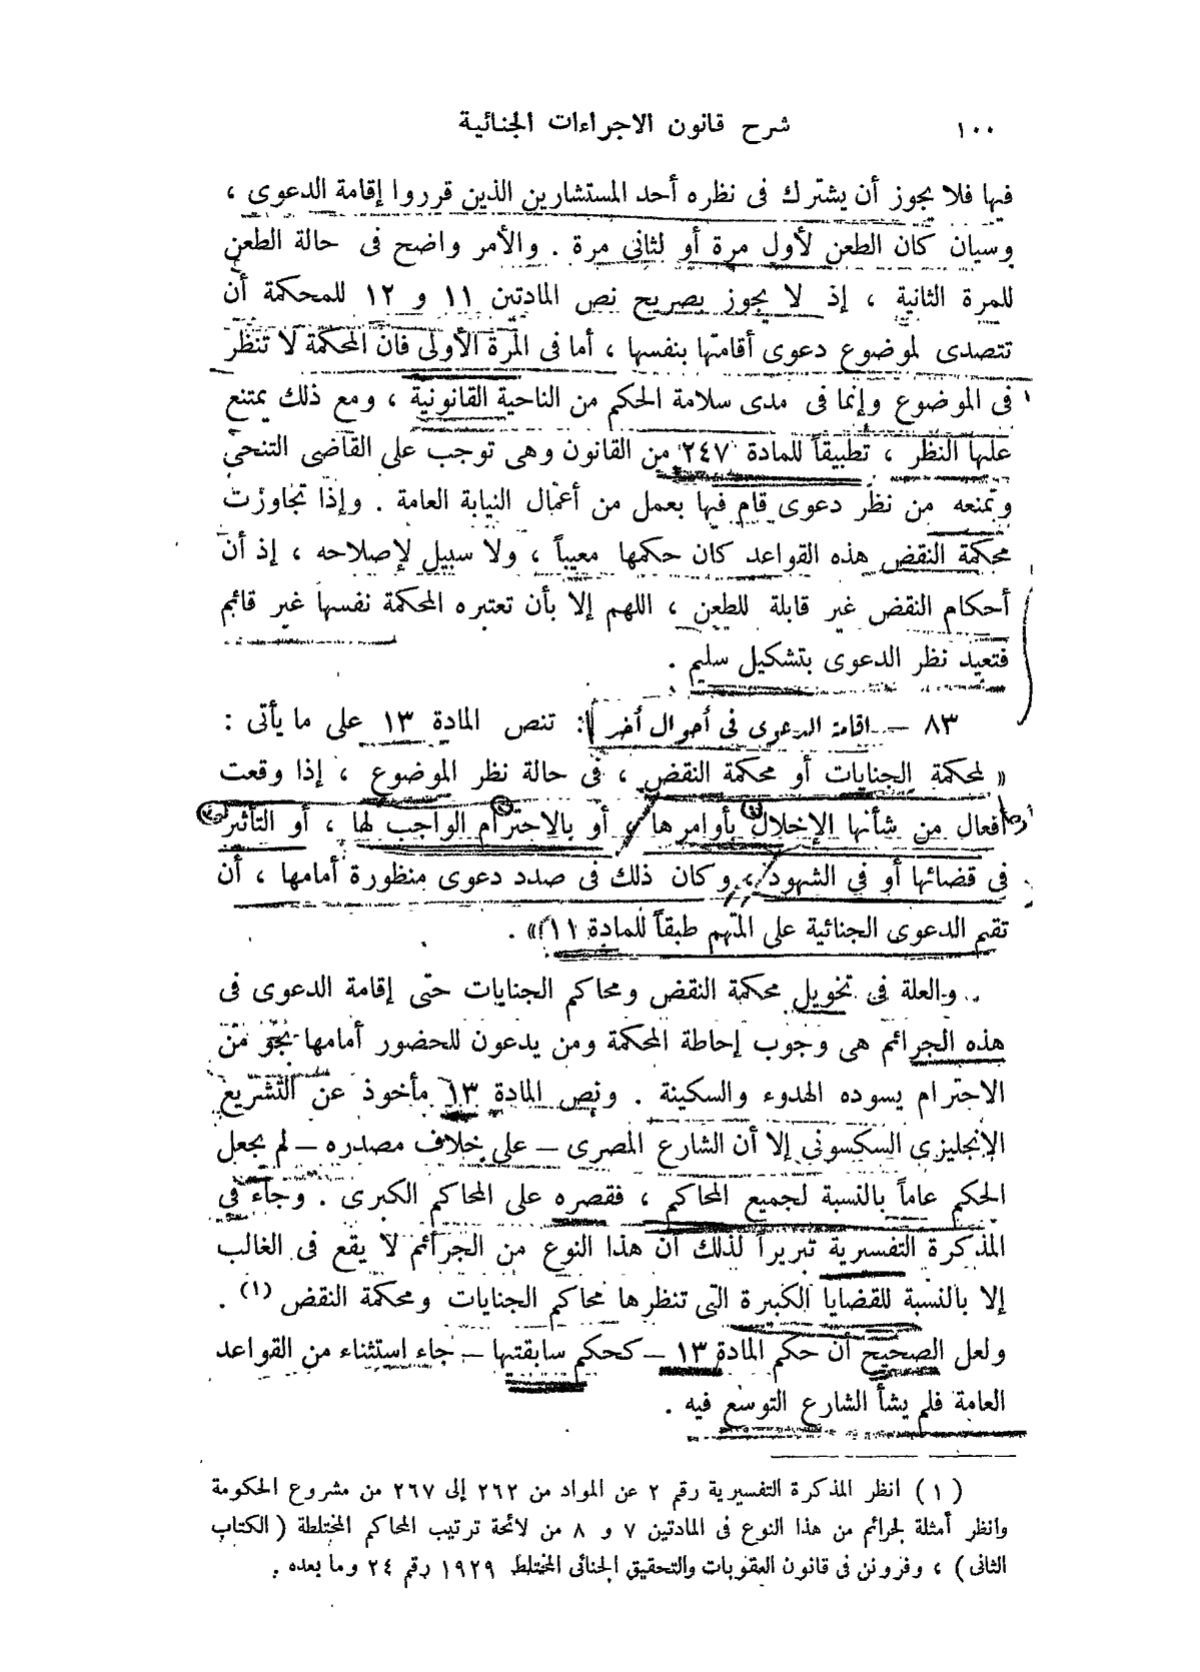 ١٠٠ شرح قانون الاجراءات الجنائية
فيها فلا يجوز أن يشترك فى نظره أحد المستشارين الذين قرروا إقامة الدعوى ،
وسيان كان الطعن لأول مرة أو لثانى مرة . والأمر واضح فى حالة الطعن
للمرة الثانية ، إذ لا يجوز بصريح نص المادتين ١١ و ١٢ للمحكمة أن
تتصدى لموضوع دعوى أقامتها بنفسها ، أما فى المرة الأولى فان المحكمة لا تنظر
فى الموضوع وإنما فى مدى سلامة الحكم من الناحية القانونية ، ومع ذلك يمتنع
عليها النظر ، تطبيقاً للمادة ٢٤٧ من القانون وهى توجب على القاضى التنحى
وتمنعه من نظر دعوى قام فيها بعمل من أعمال النيابة العامة . وإذا تجاوزت
محكمة النقض هذه القواعد كان حكمها معيباً ، ولا سبيل لإصلاحه ، إذ أن
أحكام النقض غير قابلة للطعن ، اللهم إلا بأن تعتبره المحكمة نفسها غير قائم
فتعيد نظر الدعوى بتشكيل سليم .
٨٣ – اقامة الدعوى فى أحوال أخر : تنص المادة ١٣ على ما يأتى :
« لمحكمة الجنايات أو محكمة النقض ، فى حالة نظر الموضوع ، إذا وقعت
أفعال من شأنها الإخلال بأوامرها ، أو بالاحترام الواجب لها ، أو التأثير
فى قضائها أو فى الشهود ، وكان ذلك فى صدد دعوى منظورة أمامها ، أن
تقيم الدعوى الجنائية على المتهم طبقاً للمادة ١١ » .
والعلة فى تخويل محكمة النقض ومحاكم الجنايات حتى إقامة الدعوى فى
هذه الجرائم هى وجوب إحاطة المحكمة ومن يدعون للحضور أمامها بجو من
الاحترام يسوده الهدوء والسكينة . ونص المادة ١٣ مأخوذ عن التشريع
الإنجليزى السكسونى إلا أن الشارع المصرى – على خلاف مصدره – لم يجعل
الحكم عاماً بالنسبة لجميع المحاكم ، فقصره على المحاكم الكبرى . وجاء فى
المذكرة التفسيرية تبريراً لذلك أن هذا النوع من الجرائم لا يقع فى الغالب
إلا بالنسبة للقضايا الكبيرة التى تنظرها محاكم الجنايات ومحكمة النقض (١) .
ولعل الصحيح أن حكم المادة ١٣ – كحكم سابقتها – جاء استثناء من القواعد
العامة فلم يشأ الشارع التوسع فيه .
( ١ ) انظر المذكرة التفسيرية رقم ٢ عن المواد من ٢٦٢ إلى ٢٦٧ من مشروع الحكومة
وانظر أمثلة لجرائم من هذا النوع فى المادتين ٧ و ٨ من لائحة ترتيب المحاكم المختلطة ( الكتاب
الثانى ) ، وفرونن فى قانون العقوبات والتحقيق الجنائى المختلط ١٩٢٩ رقم ٢٤ وما بعده .